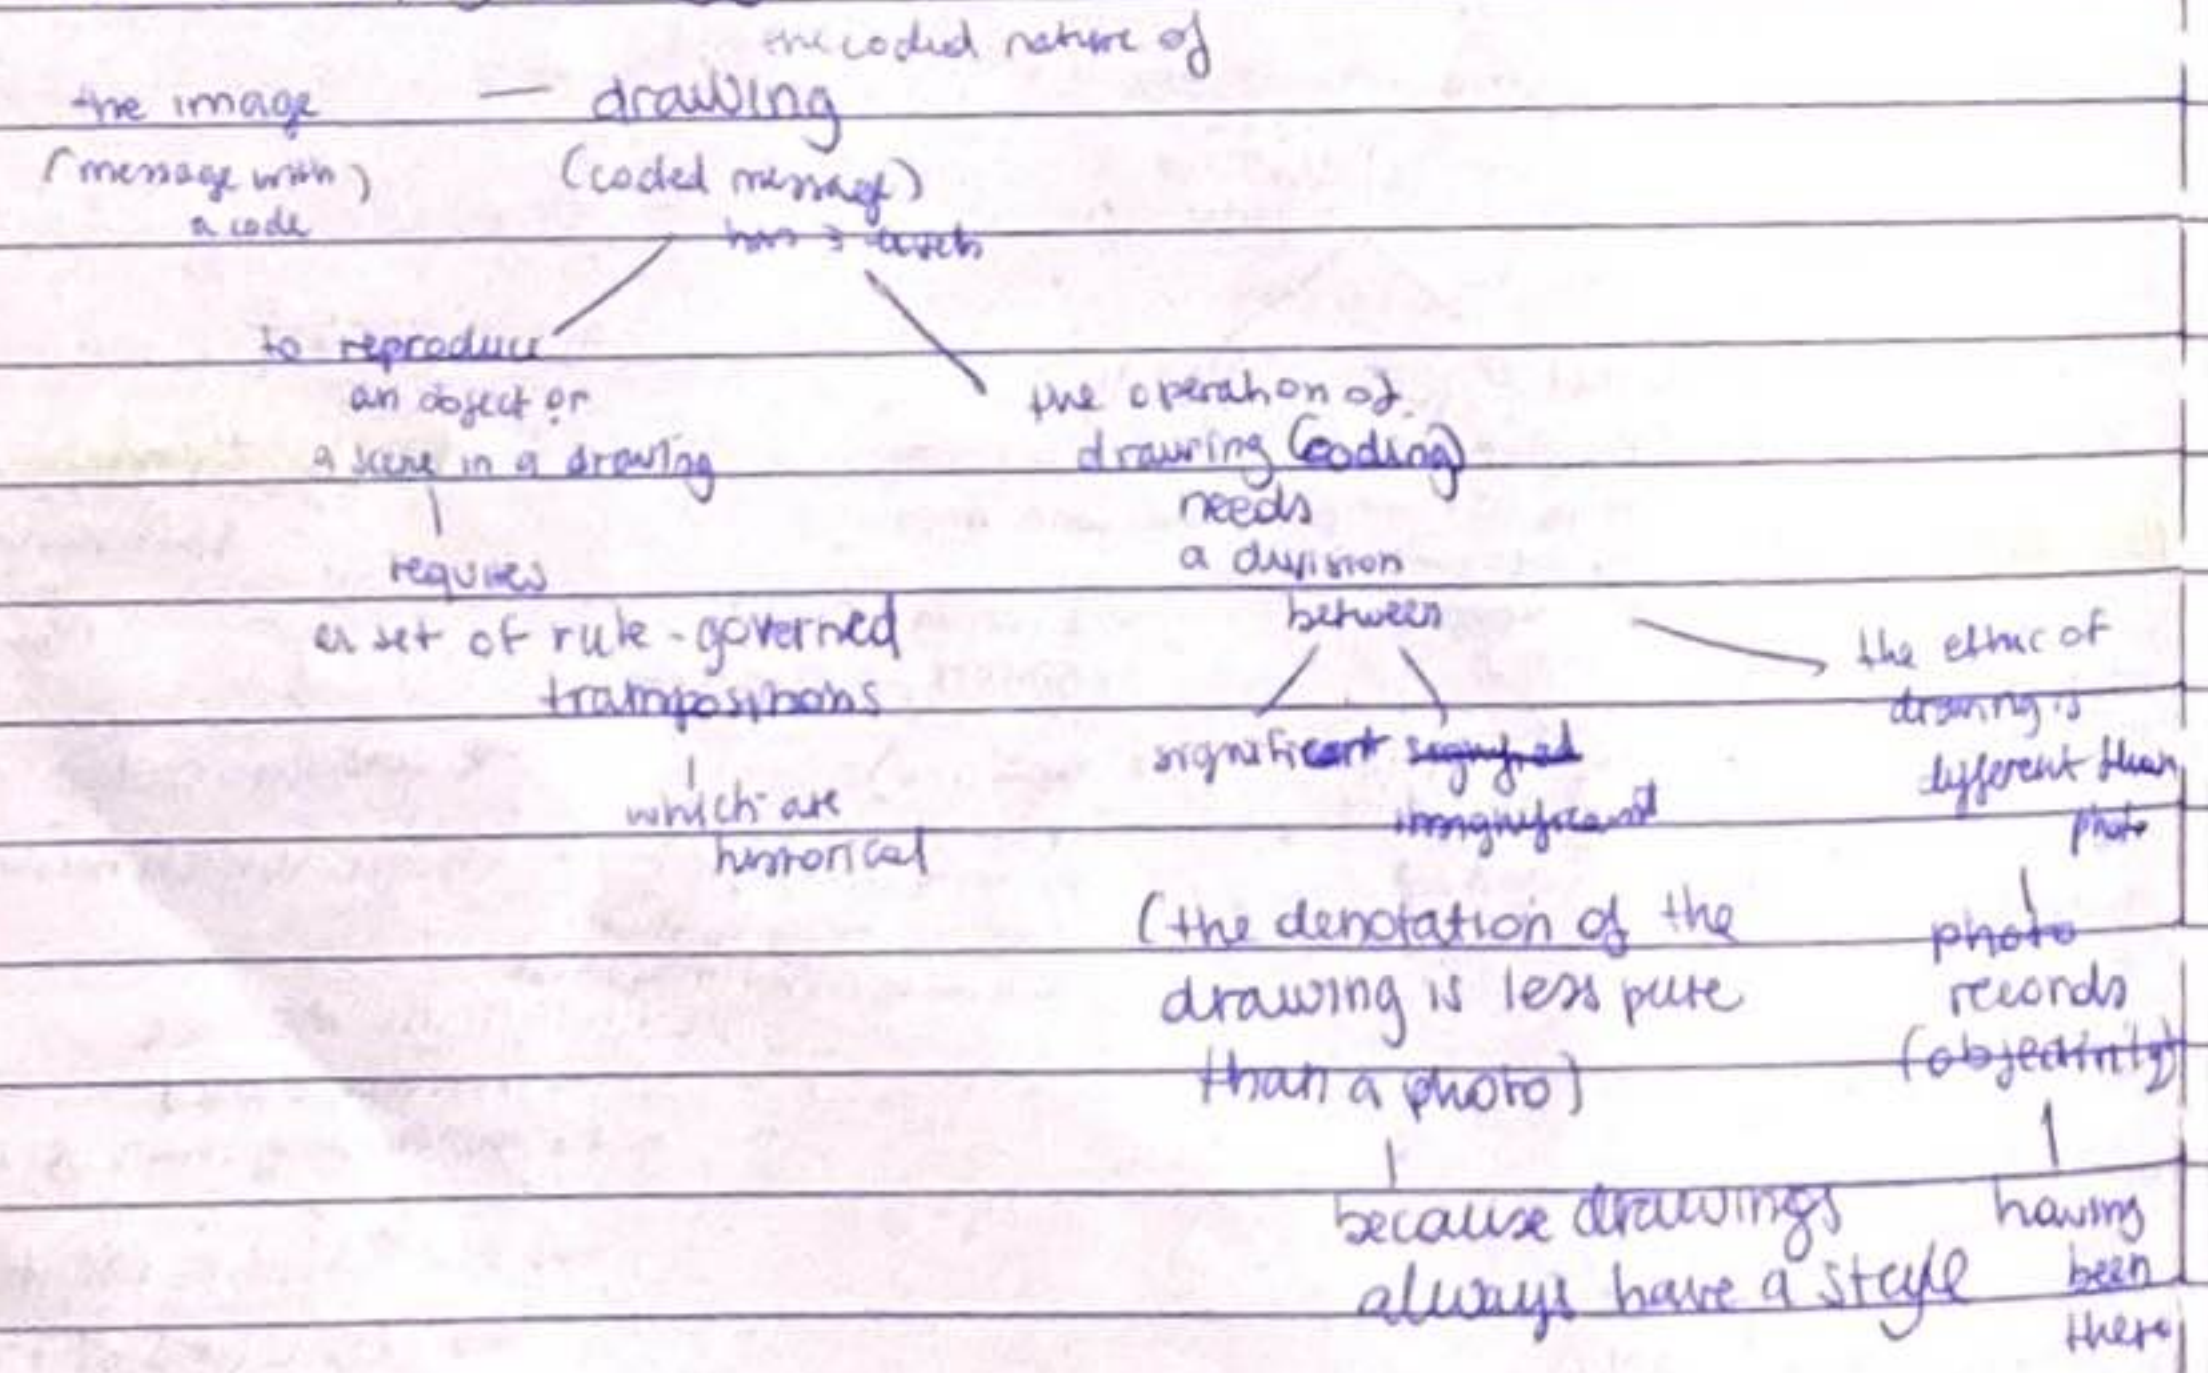 the coded nature of
the image — drawing
(message with) (coded message)
a code
has 3 assets
to reproduce
an object or
a scene in a drawing
requires
a set of rule-governed
transpositions
which are
historical
the operation of
drawing (coding)
needs
a division
between
significant signified
insignificant
(the denotation of the
drawing is less pure
than a photo)
because drawings
always have a style
the ethic of
drawing is
different than
photo
photo
records
(objectivity)
having
been
there